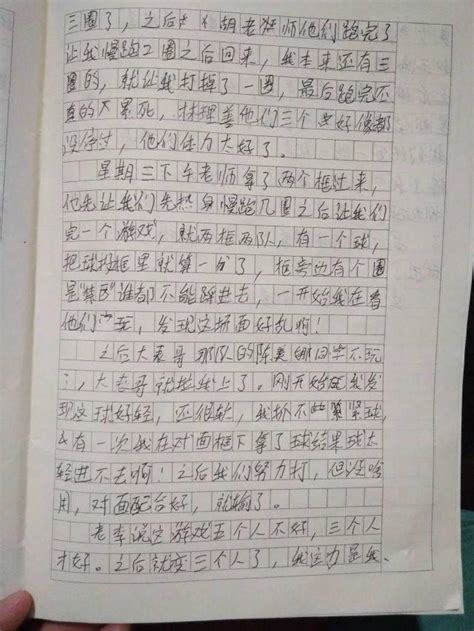 三圈了，之后 胡老 师他们跑完了
让我慢跑2圈之后回来，我本来还有三
圈的，就让我打掉了一圈，最后跑完还
真的 累死，林理善他们三个 好像都
没停过，他们体力太好了。
星期三下午老师拿了两个框过来，
他先让我们先热身慢跑几圈之后让我们
完一个游戏，就两框两队，有一个球，
把球投框里就算一分了，框旁边有个圈
是"禁区"谁都不能踩进去，一开始我在看
他们 玩，发现这场面好乱啊！
之后大表哥那队的陈美娜同学不玩
了，大表哥就 我上了。刚开始 我发
现这球好轻，还很软，我抓不 紧球，
有一次我在对面框下拿了球结果球太
轻进不去啊！之后我们努力打，但没啥
用，对面配合好，就输了。
老李说这游戏五个人不好，三个人
才好。之后就变三个人了，我这力是我、